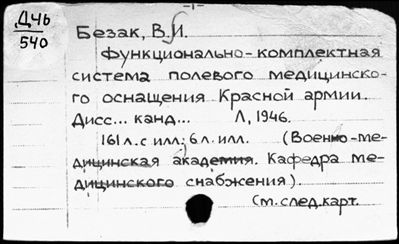 -1-
Д46
540
Безак, В.И.
Функционально-комплектная
система полевого медицинско-
го оснащения Красной армии.
Дисс... канд... Л, 1946.
161 л. с илл; 6 л. илл. (Военно-ме-
дицинская академия. Кафедра ме-
дицинского снабжения).
См. след. карт.